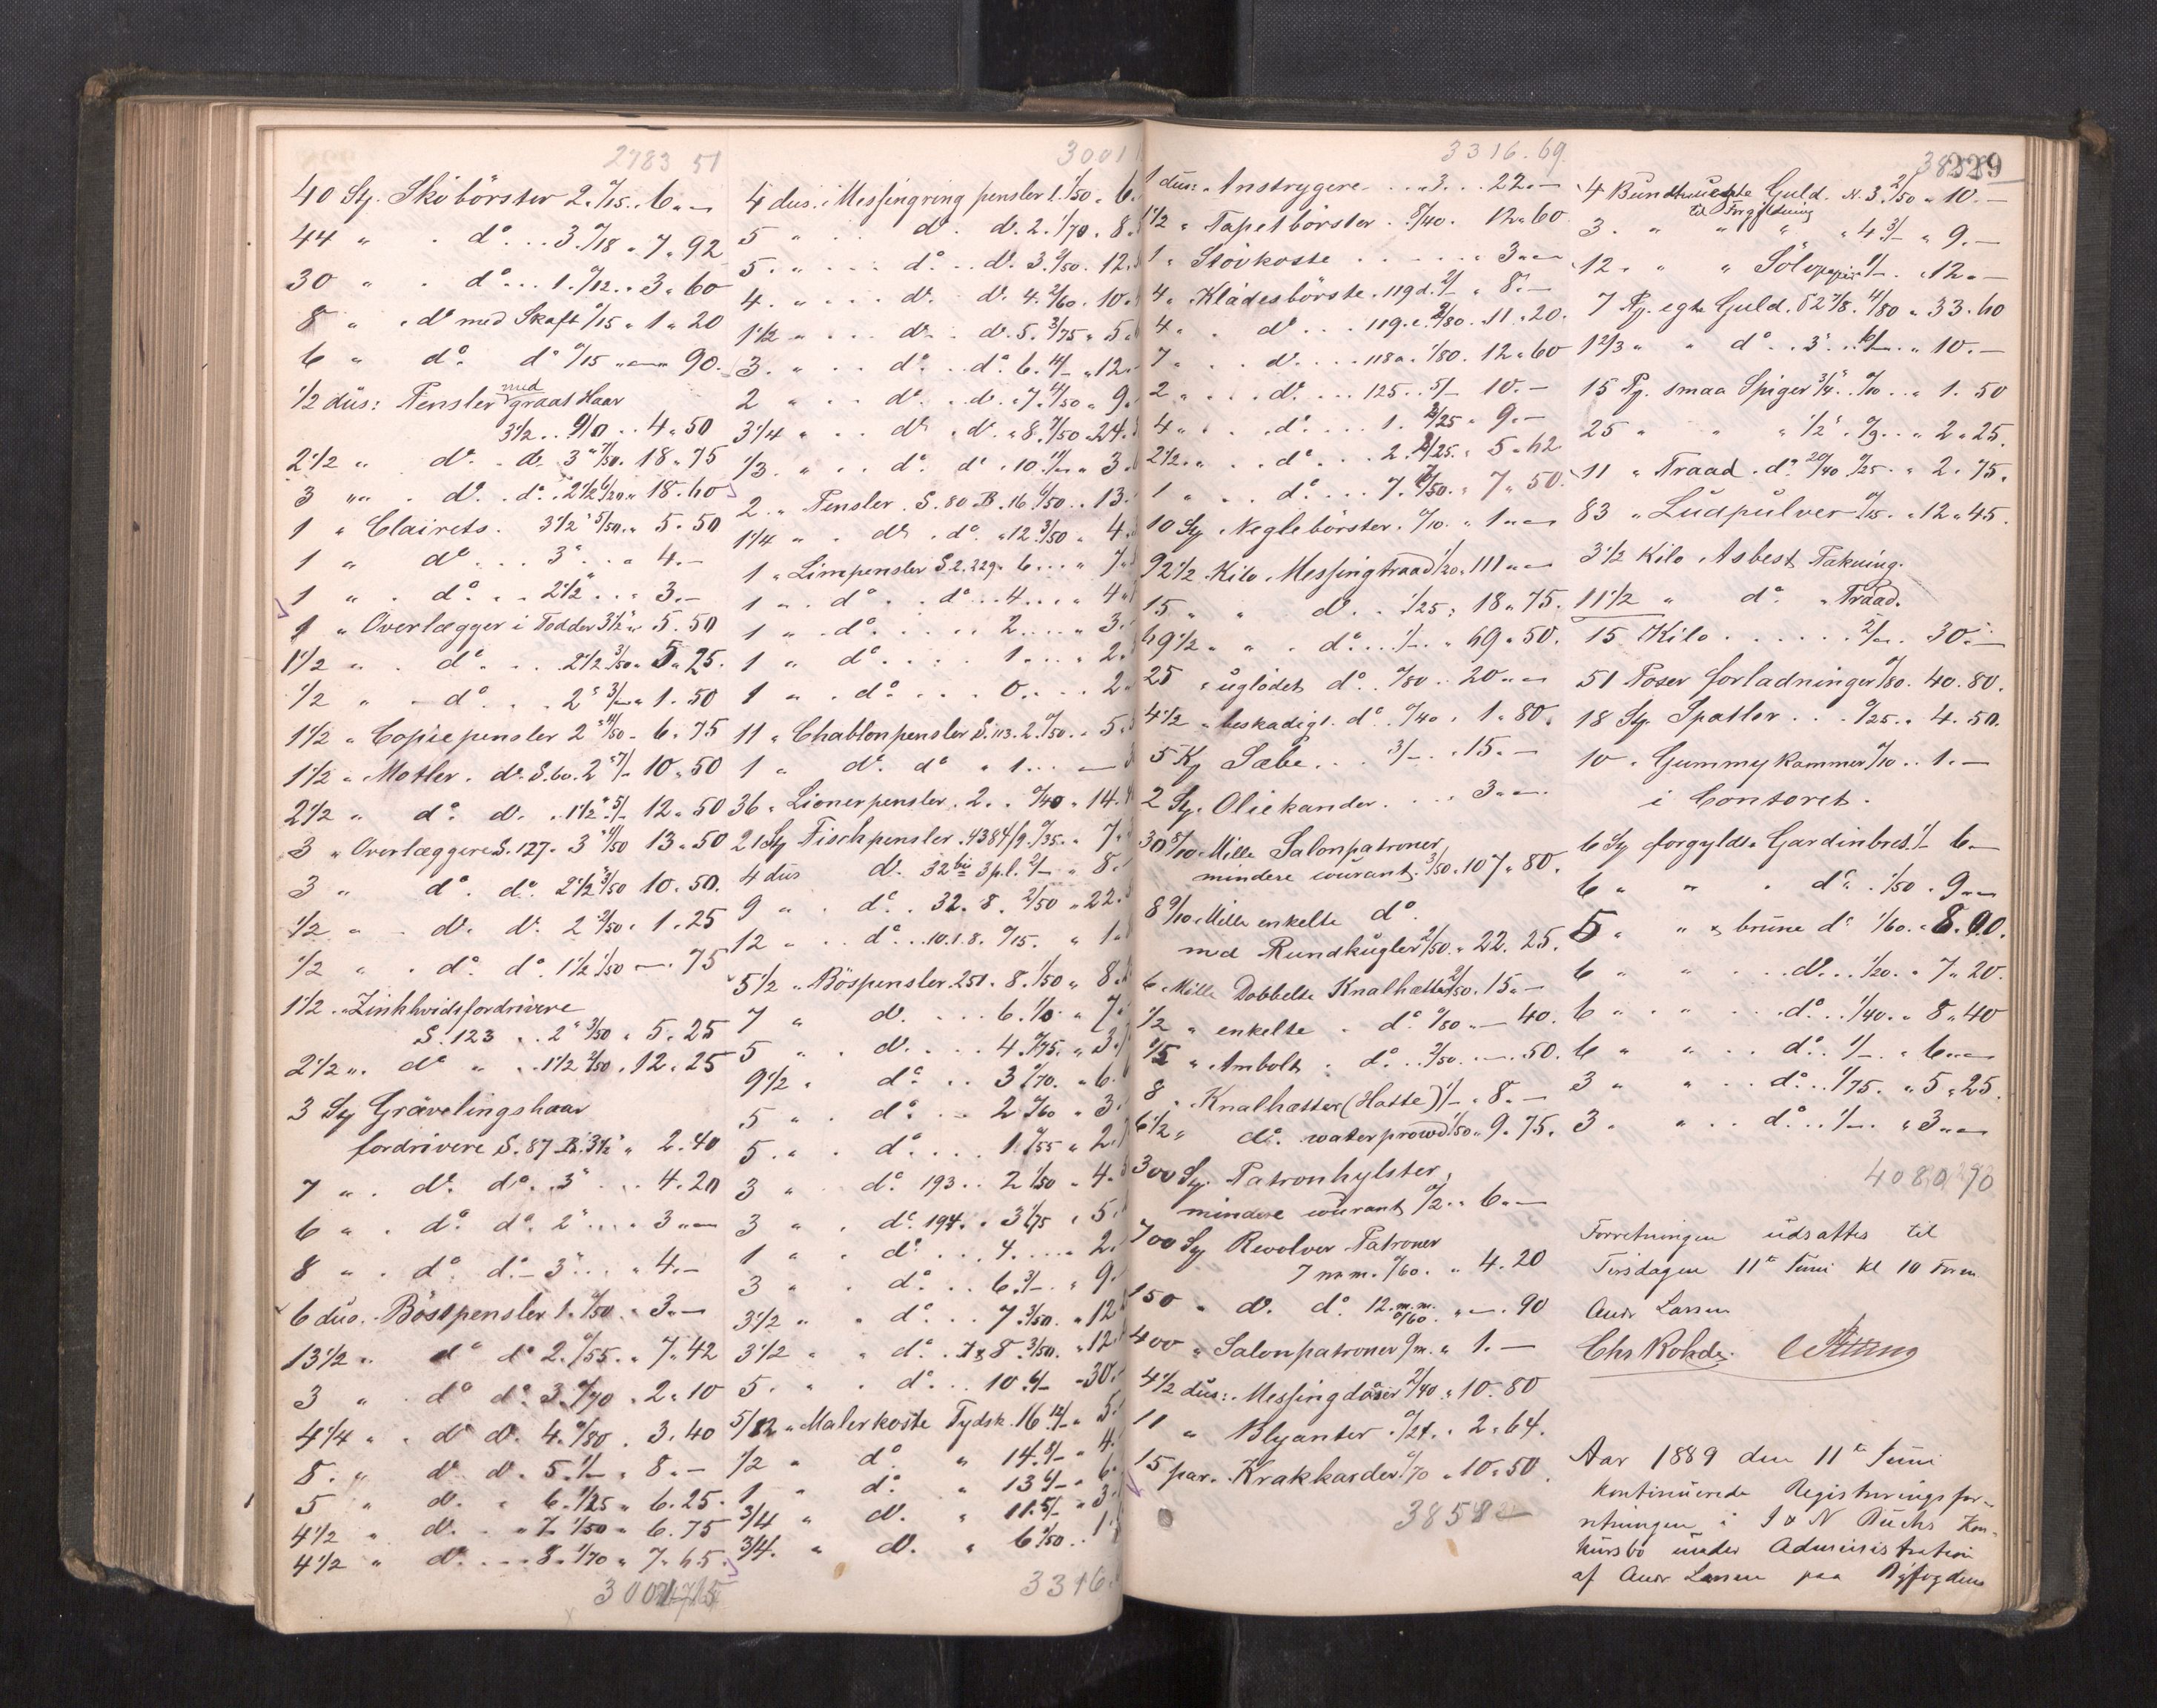 2783 51
40 Stj. Skobörster 2. 0/15. 6 " —
44 " . do ... 3. 0/18 " 7 " 92
30 " . do ... 1. 0/12 . " 3 " 60
8 " . do med Skaft 0/15 " 1 " 20
6 " do do 0/15 " — " 90.
1/2 dus: Pensler med graat Haar
3 1/2 .. 9/0 .. 4 " 50
2 1/2 " do . do 3" 7/50. 18 " 75
3 " " . do . do . 2 1/2 6/20 " 18. 60
1 " Clairets. 3 1/2" 5/50. " 5. 50
1 " do ... 3" .. " 4. —
1 " . do .. 2 1/2" .. " 3. —
1 " Overlægger i Fodder 3 1/2" " 5. 50
1 1/2 " . do ... 2 1/2 3/50 " 5 " 25.
1/2 " . do ... 2" 3/— " 1. 50
1 1/2 " Copiepensler 2" 4/50 " 6. 75
1 1/2 " Motler . do. S. 60. 2" 7/— 10 " 50
2 1/2 " do . do . 1 1/2" 5/— 12. 50
3 " Overlæggere S. 127. 3" 4/50 13 " 50
3 " do . do 2 1/2 3/50 10. 50.
1/2 " . do . do . 2 2/50. 1. 25
1/2 " . do . do . 1 1/2 1/50 — . 75
1 1/2 . " Zinkhvidsfordrivere
S. 123 . . 2" 3/50 " 5. 25
2 1/2 " . do " . 1 1/2 4/50 . 12. 25
3 Stj Grävelingshaar
fordrivere S. 87 B. 3 1/2" " 2. 40
7 " . do . do . 3" ... 4. 20
6 " . do . do . 2" ... " 3 " —
8 " . do . do . — 3" ... " 4. —
6 dus. Böstpensler 1. 0/50. " 3 " —
13 1/2 " . do do 2. 0/55. " 7. 42
3 " . do do 3. 0/70 . 2 " 10
4 1/4 " . do do . 4. 0/80 . 3. 40
8. " do do . 5. 1/— " 8. —
5 " do . " 6. 1/25 " 6. 25.
4 1/2 " do . " 7. 1/50 " 6. 75
4 1/2 " do ... 8. 1/70 " 7. 65.
3001
4 dus. Messingring pensler 1. 1/50 . 6.
5 " . . do . do . 2. 1/70 . 8.
5. " ... do .. do . 3. 2/50. 12.
4. " ... do . do . 4. 2/60. 10.
1 1/2 " ... do . do . 5. 3/75 " 5.
3. " .. do . . do . 6. 4/— " 12.
2 " .. do . . do . " 7. 4/50 " 9.
3 1/4 " .. do . do . " 8. 7/50 " 24.
1/3. " .. do . do . 10. " 3.
2 " Pensler . S. 80 . B. 16 6/50 .. 13.
1 1/4 " . do . do . " 12. 3/50 " 4.
1 " Limpensler S. 2. 229. 6 ... " 7.
1 " . do . . do ... 4 ... " 4.
1 " . do ..... 2 .... " 3.
1 " do .... 1 ... " 2.
1 " . do .... 0 ... 2.
11 " Chablonpensler S. 113. 2. 0/50. . 5.
1 " do . do " 1 ... —
36 " Lionerpensler . 2. . 0/40 " 14.
21 Stj Fischpensler . 4384/9. 0/35. " 7.
4 dus do . 32 bis 3 pl. 2/— " 8.
9 " . do . . 32. 8. 2/50 " 22.
12 " .. do ... 10. 1. 8. 0/15. " 1.
5 1/2 " Böspensler . 251. 8. 1/50 " 8.
7 " do .... 6. 1/10. " 7.
5 " . do .... 4. 0/75. " 3.
9 1/2 " do . .. 3 0/70. " 6.
5 " . do ... 2 0/60 " 3.
5. " . do .... 1 0/55 " 2.
3 " . do . 193 . . 2 1/50 " 4.
3 " . do . 194. . 3 1/75 . 5.
1 " . do ... 4 .... 2.
3 " . do ... 6. 3/— . " 9.
3 1/2 " . do ... 7. 3/50. " 12
3 1/2 " . do . . 7 x 8. 3/50. " 12
5. " . do ... 10. 6/— " 30.
5/12 " Malerkoste Tydsk. 16 12/— " 5.
1/2 " do . " 14. 8/— " 4.
1 " do . " 13 6/— " 6.
3/4 " do . " 11. 5/— " 3.
3/4. " do . " 6 2/50 . . 1.
3316.
3316.69
1 dus: " Anstrygere . . . " 3. . . 22. —
1 1/2 " Tapetbörster . . 8/40 . 12 " 60
1 " Stövkoste . . . . . " 3 " —
4 " Klädesbörste . 119 d. 2/— " 8. —
4 " . do ... 119. c. 2/80. 11 " 20.
7 " . do .... 118 a. 1/80. 12 " 60
2 " . do .... 125. . 5/— 10. —
4 " . do .... 1. 2/25 " 9. —
2 1/2 " . do ... 2. 2/25. " 5 " 62
1 " . do .... 7. 7/50. " 7 " 50.
10 Stj Neglebörster. 0/10. " 1 " —
92 1/2 Kilo Messingtraad 1/20. 111 " —
15 " " do . . 1/25 " 18 " 75.
69 1/2 " " do ... 1/— " 69 " 50.
25 " uglödet do . . 0/80 . . 20 " —
4 1/2 " beskadigt. do . 0/40 . 1. 80.
5 Kg Sæbe . . . 3/— . . 15. —
2 Stj. Oliekander . . . . 3 " —
30 8/10 Mille Salonpatroner
mindere courant . 3/50. 107 " 80.
8 9/10 Mille enkelte do .
med Rundkugler 2/50. " 22. 25.
6 . Mille Dobbelte Knalhætter 2/50. 15. —
1/2 " enkelte . do . 0/80. — 40.
1/5 " Ambolt . do . . 2/50. . — . 50.
8 " Knalhætter (Hatte) 1/— . 8. —
6 1/2 " do . waterprowd 1/50 " 9. 75.
300 Stj. Patronhylster,
mindere courant 0/2. . 6. —
700 Stj Revolver Patroner
7 mm. 0/60. " 4. 20
150 " do . do . 12. m.m. 0/60. " — . 90
400 " Salonpatroner 9 m. " 1. —
4 1/2 dus: . Messingdåser 2/40 " 10. 80
11 " Blyanter . 0/24. . 2 " 64.
15 par. Krakkarder 0/70 " 10 " 50.
229
4 Bundtuægte Guld. N. 3. 2/50 " 10. —
til Forgyldning
3. " " " " 4. 3/— " 9. —
12. " " Sölvpapir 1/— . " 12. —
7 Pg. egte Guld. 82 3/8. 4/80 " 33. 60
1 2/3 " " do . . 3". . 6/— . " 10. —
15 Pg. smaa Spiger 3/4". . 0/10 . . " 1. 50
25 " " " 1/2" . 0/9. . " 2 " 25.
11 " Traad . do . 20/40 0/25. " 2. 75.
83 " Ludpulver 0/15. . 12 " 45.
3 1/2 Kilo Asbest Pakning.
11 1/2 " do . " Traad.
15 Kilo . . . . . . 2/— 30. —
51 Poser forladninger 0/80. 40. 80.
18 Stj. Spatler . . . 0/25. " 4. 50.
10 . Gummykammer 0/10 . . 1. —
i Contoret.
6 Stj forgyldte Gardinbret. 1/— 6 —
6 " " . do . . 1/50 . 9 " —
5 " " brune do 1/60. . 8. 00.
6 " " ... do ... 1/20. . 7 " 20.
6 " . " ... do ... 1/40. . 8 " 40
6 " " . . do . . 1/— . " 6 " —
3 " " . . do . . . 1/75. " 5 " 25.
3 " " . . do . . . 1/— . " 3 " —
Forretningen udsattes til
Tirsdagen 11te Juni kl 10 Form
Andr Larsen
Chs Rohde.
Aar 1889 den 11te Juni
kontinuerede Registreringsfor-
retningen i J & N Buchs Kon-
kursbo under Administration
af Andr Larsen paa Byfogdens